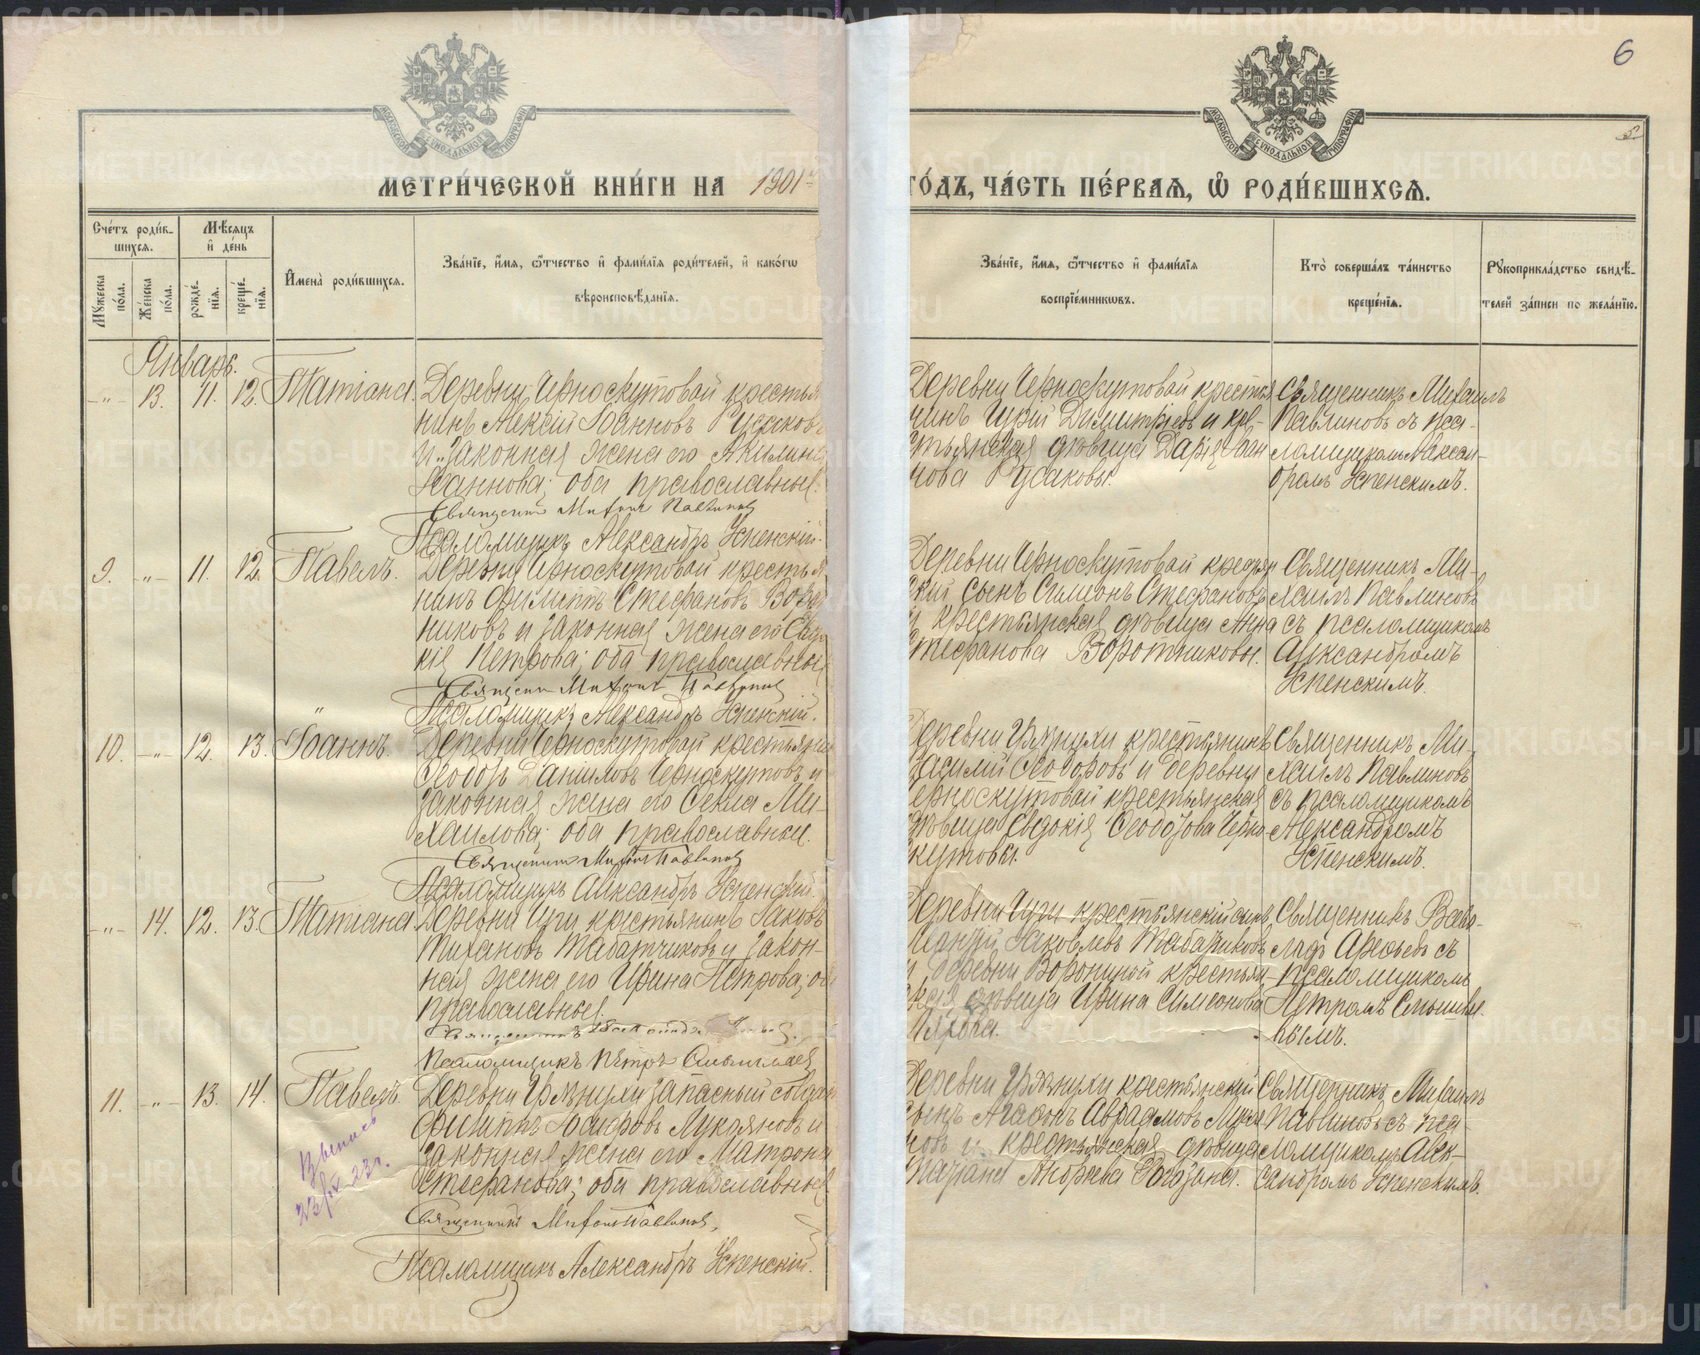 6
МЕТРИ́ЧЕСКОЙ КНИ́ГИ НА 1901
ГО́ДЪ, ЧА́СТЬ ПЕ́РВАЯ, Ѡ҆ РОДИ́ВШИХСЯ.
Сче́тъ роди́в-
шихся.
Мѣ́сяцъ
и҆ де́нь
Мꙋ́жеска
по́ла.
Же́нска
по́ла.
рожде́-
нїя.
креще́-
нїя.
И҆мена̀ роди́вшихся.
Зва́нїе, и҆́мя, ѻ҆́тчество и҆ фами́лїя роди́телей, и҆ како́гѡ
вѣроисповѣ́данїя.
Зва́нїе, и҆́мя, ѻ҆́тчество и҆ фами́лїя
воспрїе́мникѡвъ.
Кто̀ соверша́лъ та́инство
креще́нїя.
Рꙋкоприкла́дство свидѣ́-
телей за́писи по жела́нїю.
Январь.
-"- 13. 11. 12. Татіана.
Деревни Черноскутовой крестья
нинъ Алексій Іоанновъ Русаковъ
и законная жена его Акилина
Іоаннова; оба православные.
Священник Михаил Павлинов
Псаломщикъ Александръ Успенскій.
Деревни Черноскутовой крестья
нинъ Урій Димитріевъ и кре-
стьянская дѣвица Дарія Іоан
нова Русаковы.
Священникъ Михаилъ
Павлиновъ съ пса-
ломщикомъ Алексан-
дромъ Успенскимъ.
9. -"- 11. 12. Павелъ.
Деревни Черноскутовой крестья
нинъ Филиппъ Стефановъ Ворот
никовъ и законная жена его Евдо
кія Петрова; оба православные
Священник Михаил Павлинов
Псаломщикъ Александръ Успенскій.
Деревни Черноскутовой крестьян
скій сынъ Симеонъ Стефановъ
и крестьянская дѣвица Анна
Стефанова Воротниковы.
Священникъ Ми-
хаилъ Павлиновъ
съ псаломщикомъ
Александромъ
Успенскимъ.
10. -"- 12. 13. Іоаннъ.
Деревни Черноскутовой крестьянин
Ѳеодоръ Даніиловъ Черноскутовъ и
законная жена его Ѳекла Ми-
хаилова; оба православные.
Священник Михаил Павлинов
Псаломщикъ Александръ Успенскій.
Деревни Грязнухи крестьянинъ
Василій Ѳеодоровъ и деревни
Черноскутовой крестьянская
дѣвица Евдокія Ѳеодорова Черно
скутовы.
Священникъ Ми-
хаилъ Павлиновъ
съ псаломщикомъ
Александромъ
Успенскимъ.
-"- 14. 12. 13. Татіана.
Деревни крестьянинъ Іаковъ
Табатчиковъ и закон-
ная жена его Ирина Петрова; оба
православные.
Священникъ
Псаломщикъ Петръ
Деревни крестьянскій сынъ
Іаковлевъ Табатчиковъ
и деревни Ворониной крестьян
ская дѣвица Ирина Симеонова
Священникъ Всево
лодъ Арефьевъ съ
псаломщикомъ
Петромъ Смышляе
вымъ.
11. -"- 13. 14. Павелъ.
Деревни Грязнухи запасный солдат
Филиппъ Іосифовъ Лукояновъ и
законная жена его Матрона
Стефанова; оба православные
Священникъ Михаил Павлинов.
Псаломщикъ Александръ Успенскій.
Деревни Грязнухи крестьянскій
сынъ Агафонъ Авраамовъ Лукоя
новъ и крестьянская дѣвица
Андреева
Священникъ Михаилъ
Павлиновъ съ пса-
ломщикомъ Алек-
сандромъ Успенскимъ.
METRIKI.GASO-URAL.RU